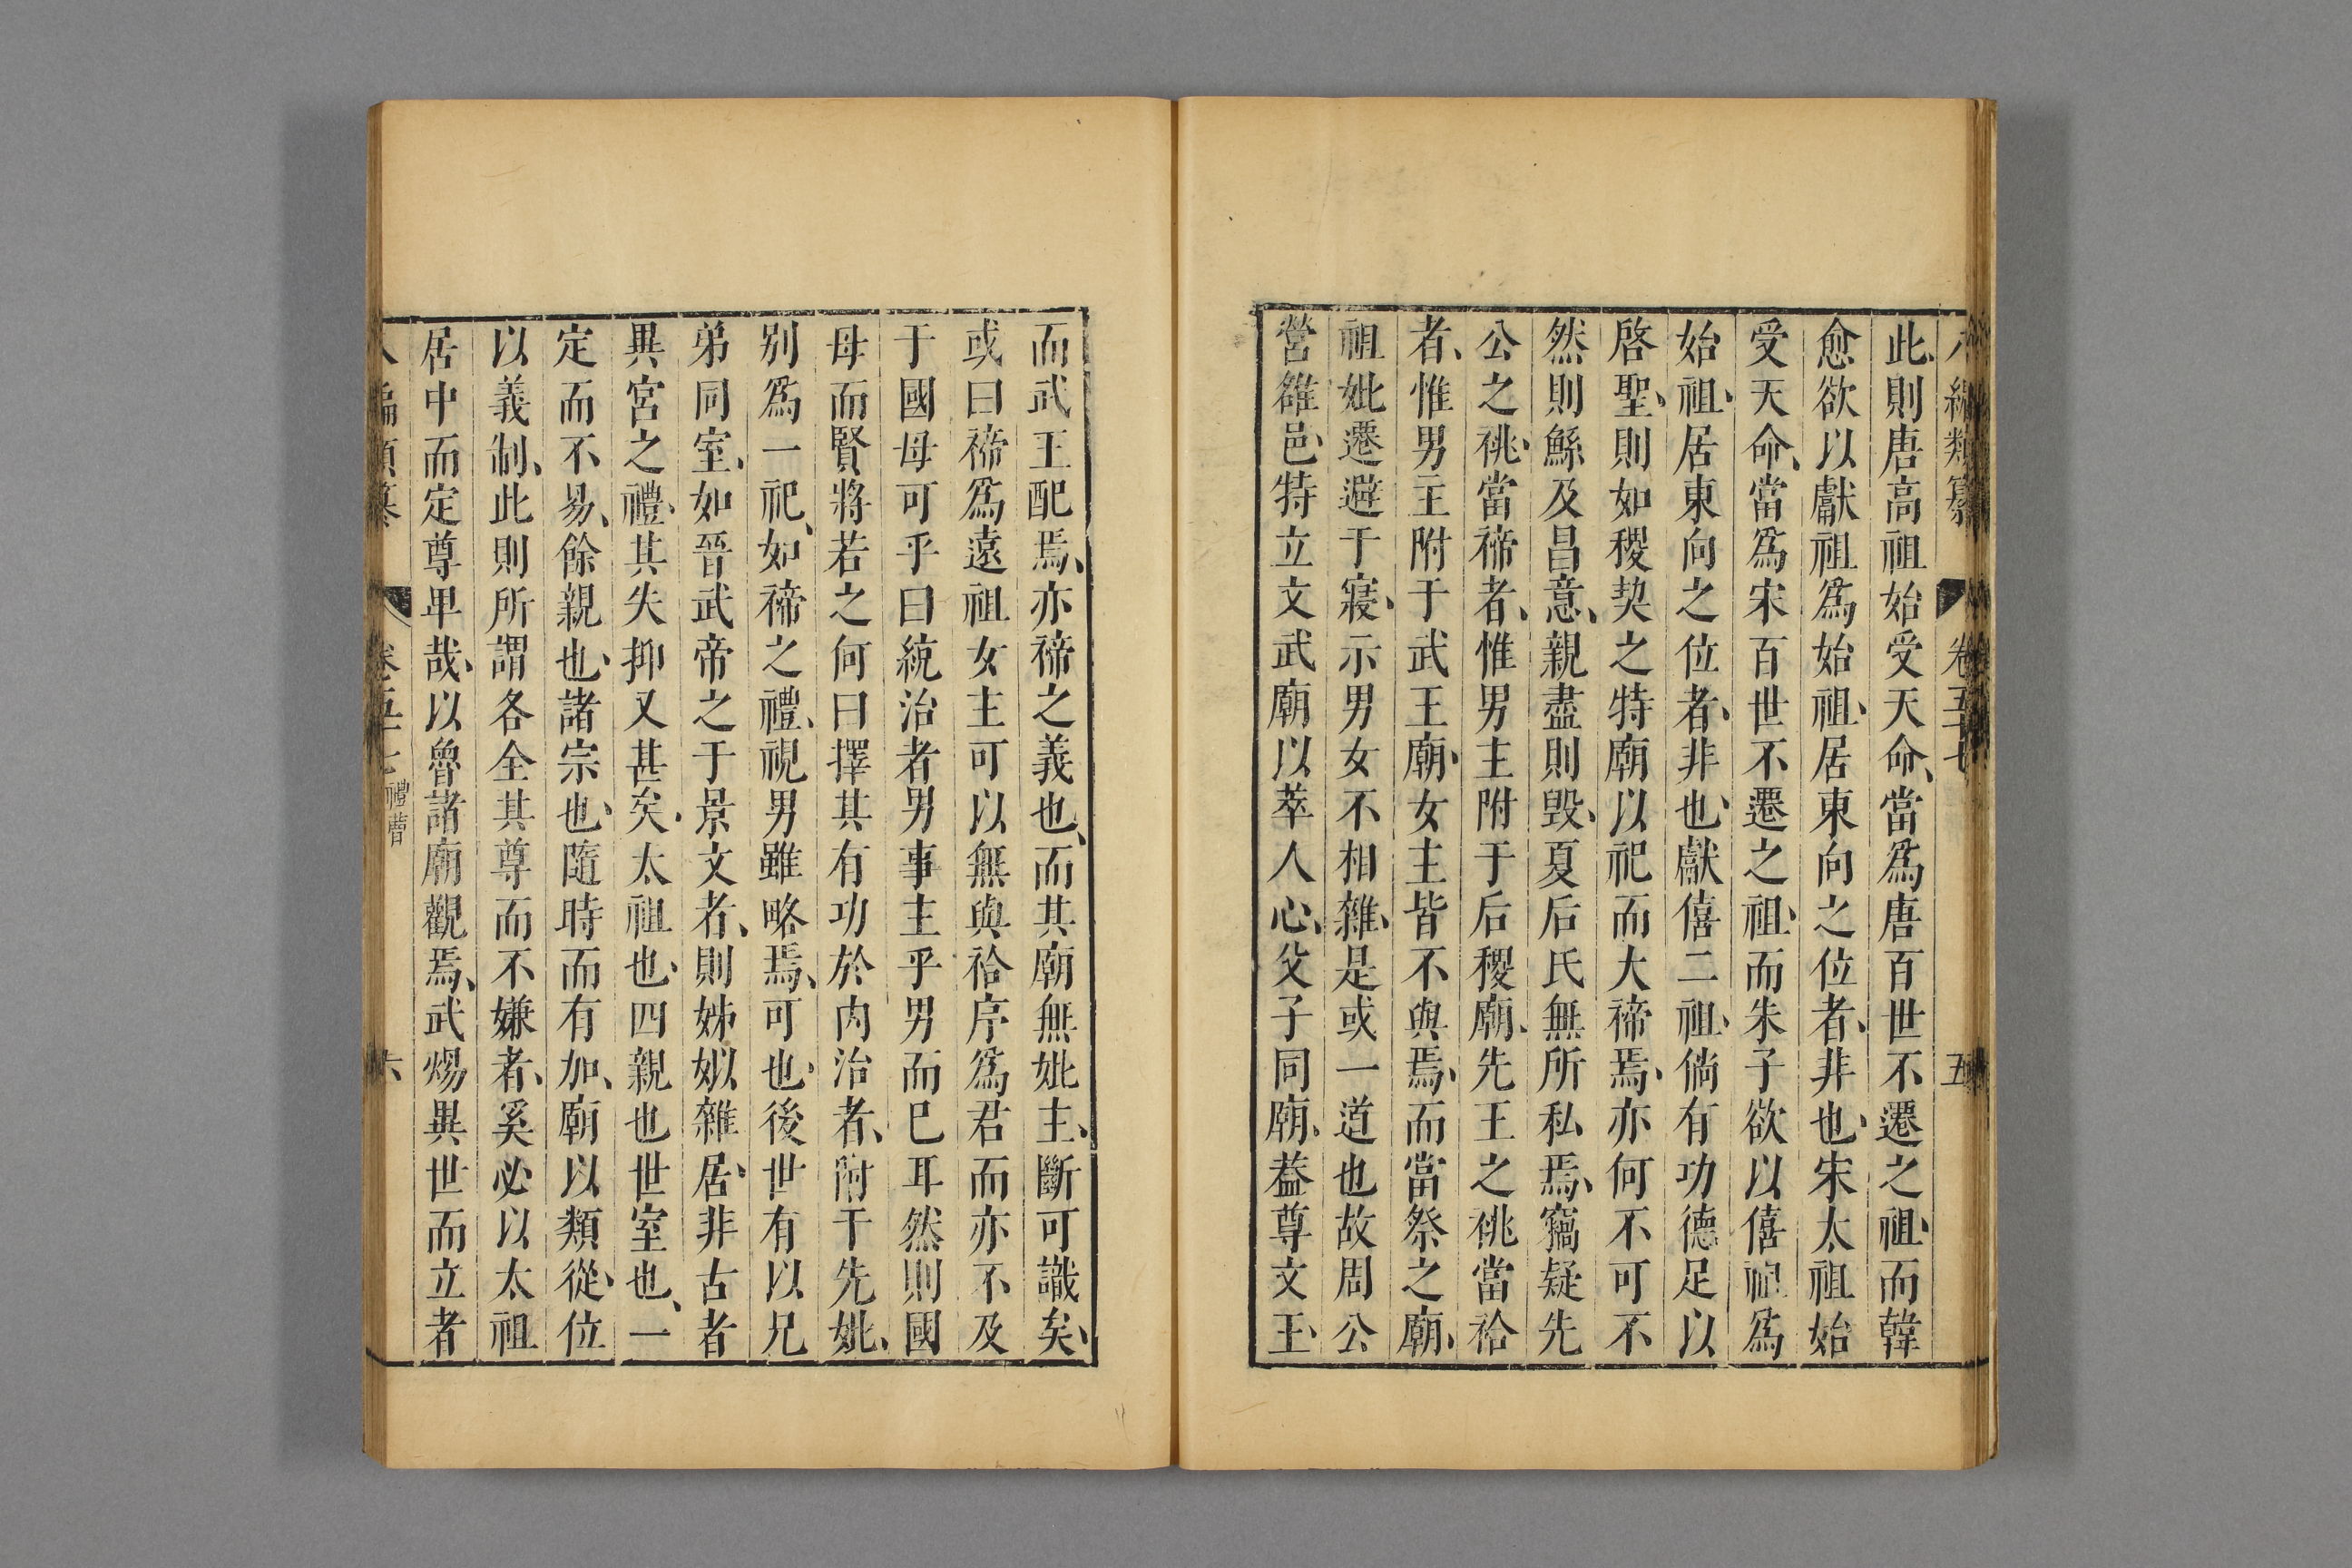 八編類纂 卷五十七 五
此、則唐高祖始受天命、當爲唐百世不遷之祖、而韓
愈欲以獻祖爲始祖、居東向之位者、非也、宋太祖始
受天命、當爲宋百世不遷之祖、而朱子欲以僖祖爲
始祖、居東向之位者、非也、獻僖二祖、倘有功德足以
啓聖、則如稷契之特廟以祀而大禘焉、亦何不可不
然則鯀及昌意、親盡則毀、夏后氏無所私焉、竊疑先
公之祧、當禘者、惟男主附于后稷廟、先王之祧當祫
者、惟男主附于武王廟、女主皆不與焉、而當祭之廟、
祖妣遷避于寢、示男女不相雜、是或一道也故周公
營雒邑、特立文武廟以萃人心、父子同廟、葢尊文王、
而武王配焉、亦禘之義也、而其廟無妣主、斷可識矣、
或曰禘爲遠祖女主可以無與祫序爲君而亦不及
于國母可乎曰統治者男事主乎男而已耳然則國
母而賢將若之何曰擇其有功於内治者、附于先妣、
别爲一祀、如禘之禮、視男雖略焉、可也、後世有以兄
弟同室、如晉武帝之于景文者、則姊姒雜居、非古者
異宮之禮、其失抑又甚矣、太祖也、四親也世室也、一
定而不易、餘親也、諸宗也、隨時而有加、廟以類從、位
以義制、此則所謂各全其尊而不嫌者、奚必以太祖
居中而定尊卑哉、以魯諸廟觀焉、武煬異世而立者
八編類纂 卷五十七 禮曹 六